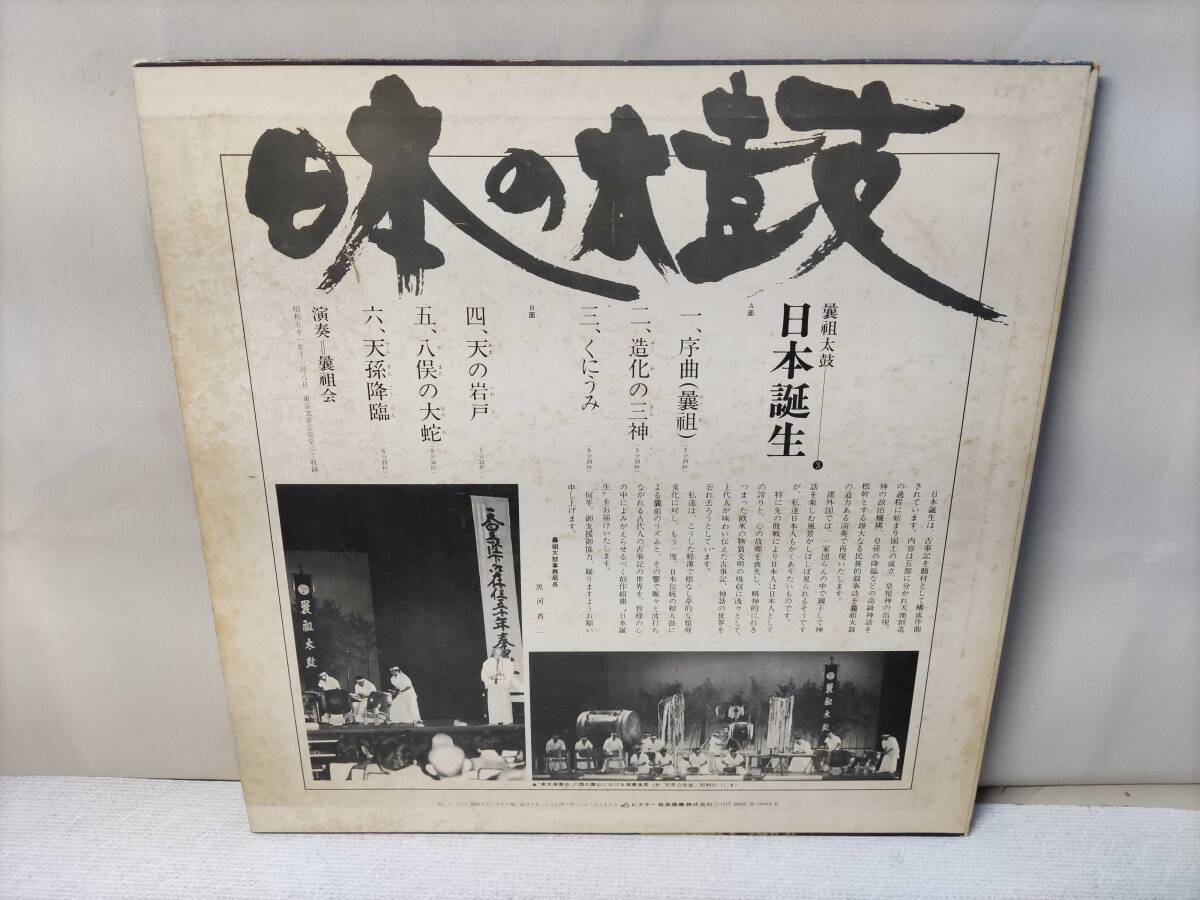 日本の太鼓
曩祖太鼓
日本誕生
3
A面
一、序曲(曩祖)
二、造化の三神
(5分50秒)
三、くにうみ
(6分20秒)
B面
四、天の岩戸
五、八俣の大蛇
六、天孫降臨
演奏=曩祖会
日本誕生は、古事記を題材として構成作曲
されています。内容は五部に分かれ天地創造
の過程に始まり国土の成立、皇祖神の出現、
神の政治機構、皇孫の降臨などの高級神話を
根幹とする雄大なる民族的叙事詩を曩祖太鼓
の迫力ある演奏で再現いたします。
諸外国では、一家団らんの中で親子して神
話を楽しむ風景がしばしば見られるそうです
が、私達日本人もかくありたいものです。
特に先の敗戦により日本人は日本人として
の誇りと、心の故郷を喪失し、精神的に行き
つまった欧米の物質文明の吸収に汲々として、
上代人が味わい伝えた古事記、神話の世界を
忘れ去ろうとしています。
私達は、こうした軽薄で根なし草的な
文化に対し、もう一度、日本伝統の和太鼓に
よる曩祖のリズムと、その響で脈々と波打ち
ながれる古代人の古事記の世界を、皆様の心
の中によみがえらせるべく創作組曲"日本誕
生"をお届けいたします。
何卒、御支援御協力、賜りますようお願い
申し上げます。
曩祖太鼓事務局長
黒河省二
曩祖太鼓
曩祖太鼓
ビクター音楽産業株式会社